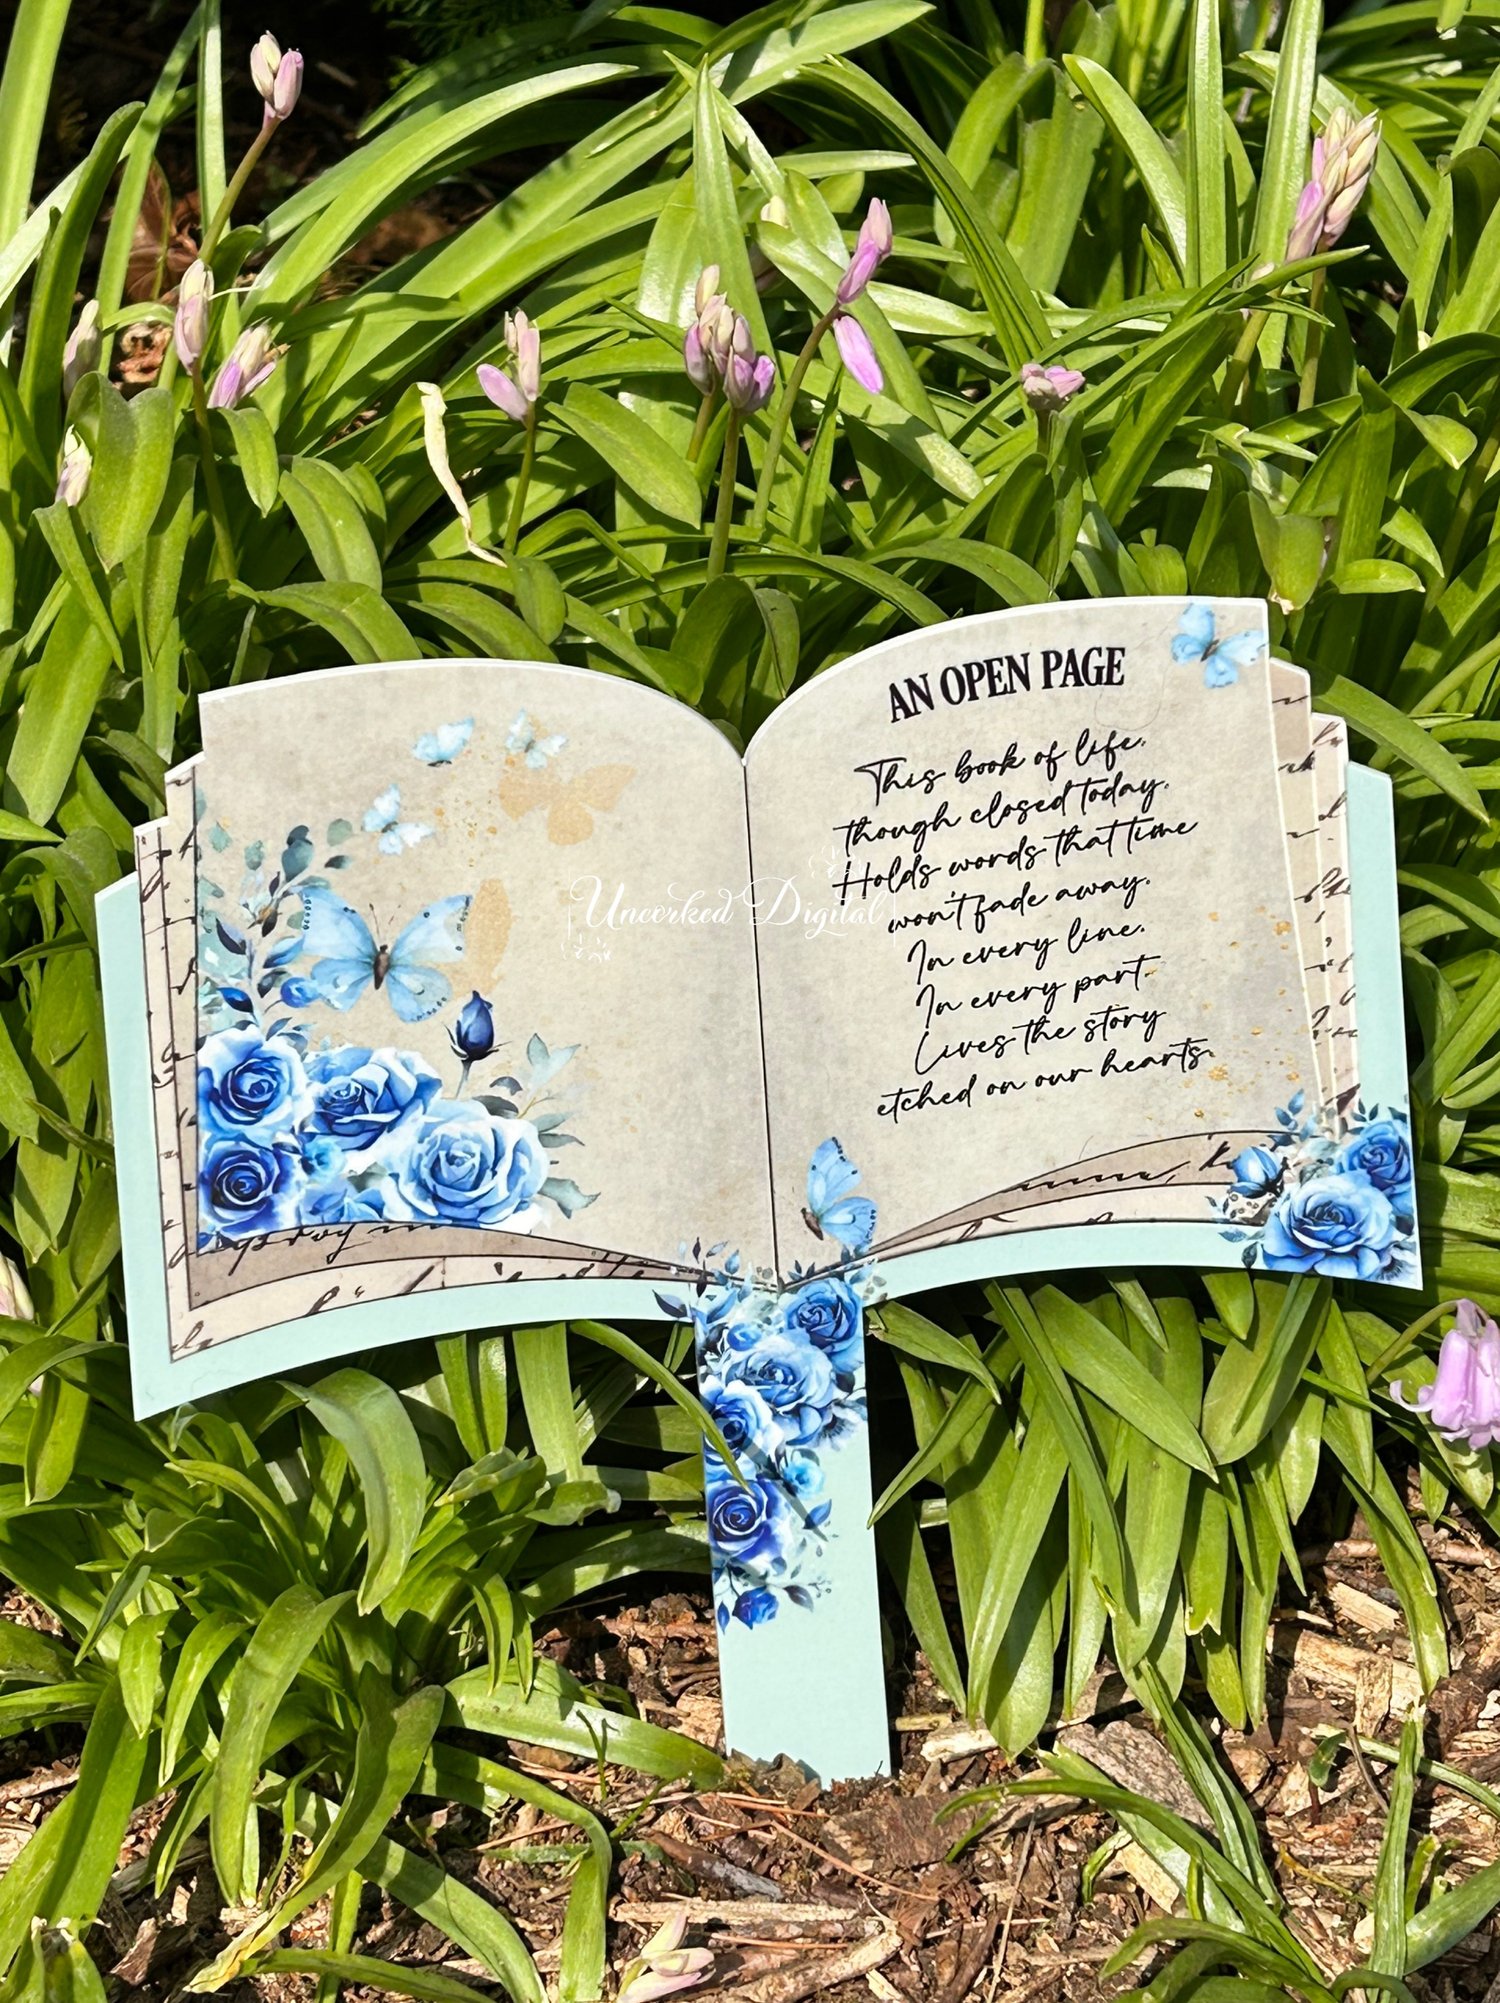 AN OPEN PAGE
This book of life,
though closed today,
Holds words that time
won't fade away.
In every line,
In every part
Lives the story
etched on our hearts.
Uncorked Digital